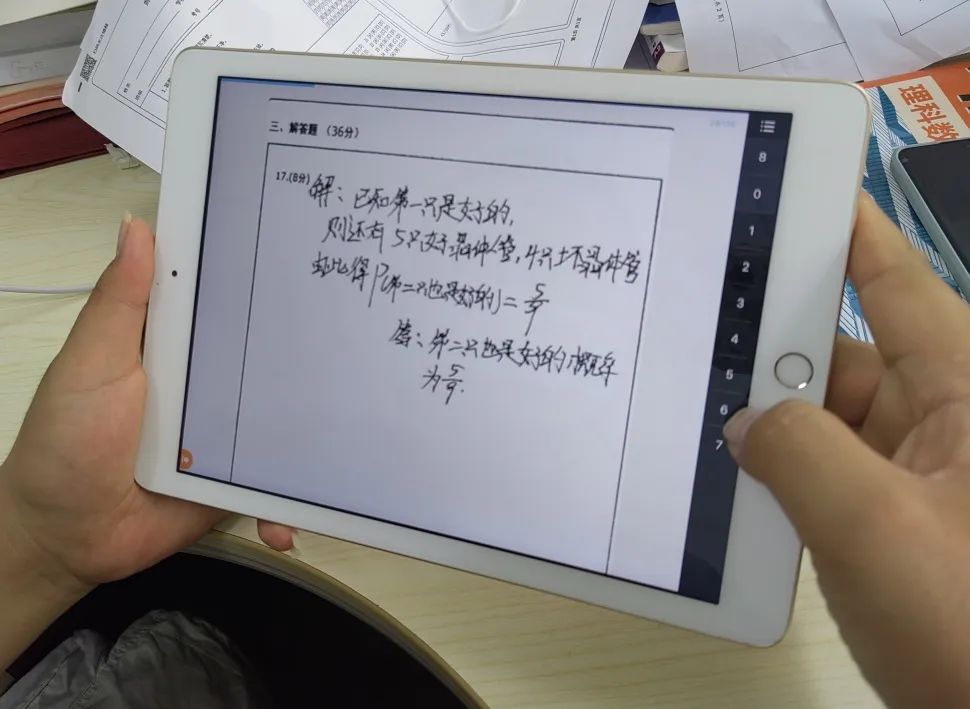 三、解答题 （36分）
17.(8分) 解：已知第一只是好的，
则还有5只好晶体管，4只坏晶体管
由此得P(第二只也是好的)＝5/9
答：第二只也是好的概率
为5/9.
8
0
1
2
3
4
5
6
7
理科数